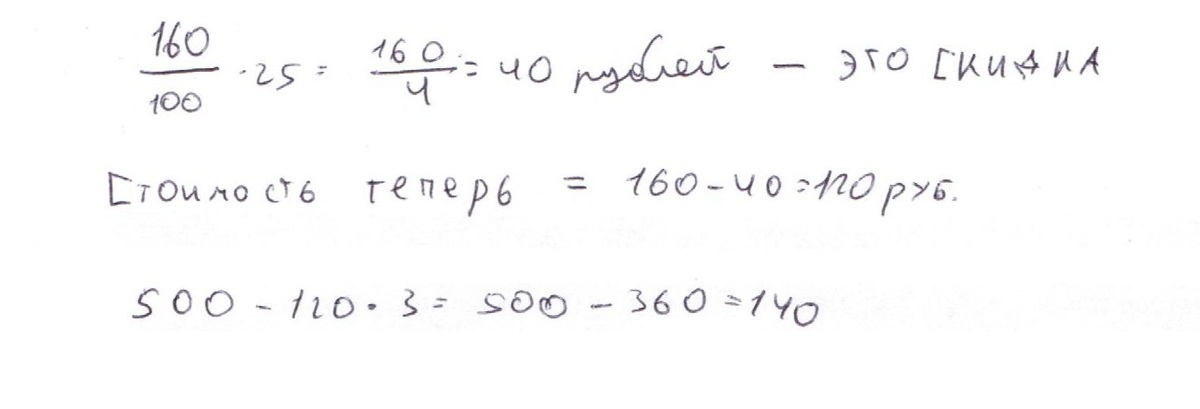 160/100 · 25 = 160/4 = 40 рублей — это скидка
Стоимость теперь = 160 - 40 = 120 руб.
500 - 120 · 3 = 500 - 360 = 140